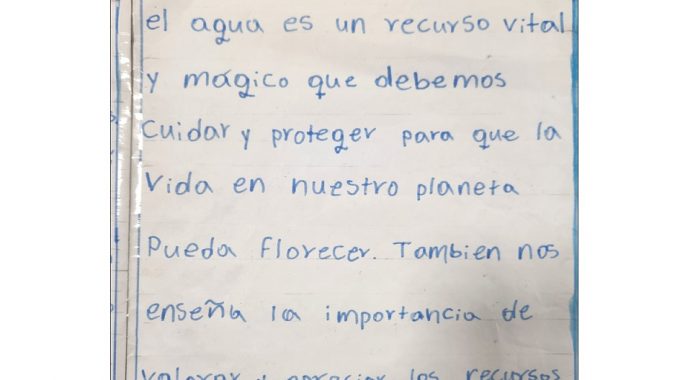 el agua es un recurso vital
y mágico que debemos
Cuidar y proteger para que la
Vida en nuestro planeta
Pueda Florecer. Tambien nos
enseña la importancia de
valorar y apreciar los recursos